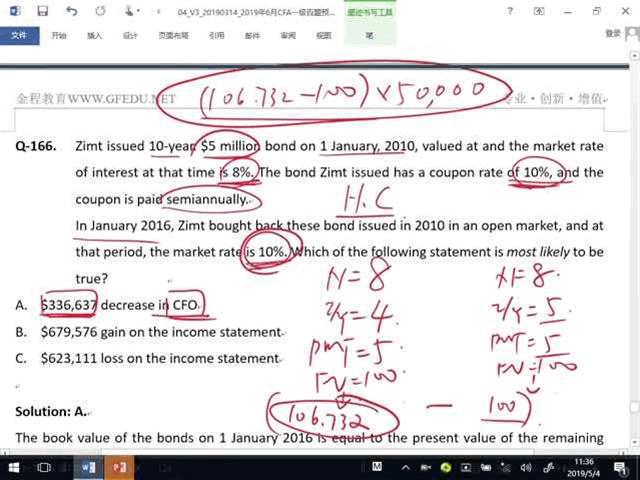 04_V3_20190314_2019年6月CFA一级百题预...
墨迹书写工具
文件 开始 插入 设计 页面布局 引用 邮件 审阅 视图 笔
登录
(106.732-100)×50,000
金程教育WWW.GFEDU.NET
专业·创新·增值
Q-166. Zimt issued 10-year, $5 million bond on 1 January, 2010, valued at and the market rate
of interest at that time is 8%. The bond Zimt issued has a coupon rate of 10%, and the
coupon is paid semiannually.
H.C
In January 2016, Zimt bought back these bond issued in 2010 in an open market, and at
that period, the market rate is 10%. Which of the following statement is most likely to be
true?
N=8 N=8
A. $336,637 decrease in CFO
I/Y=4 I/Y=5
B. $679,576 gain on the income statement
PMT=5 PMT=5
C. $623,111 loss on the income statement
FV=100 FV=100
(106.732 - 100)
Solution: A.
The book value of the bonds on 1 January 2016 is equal to the present value of the remaining
11:36
2019/5/4